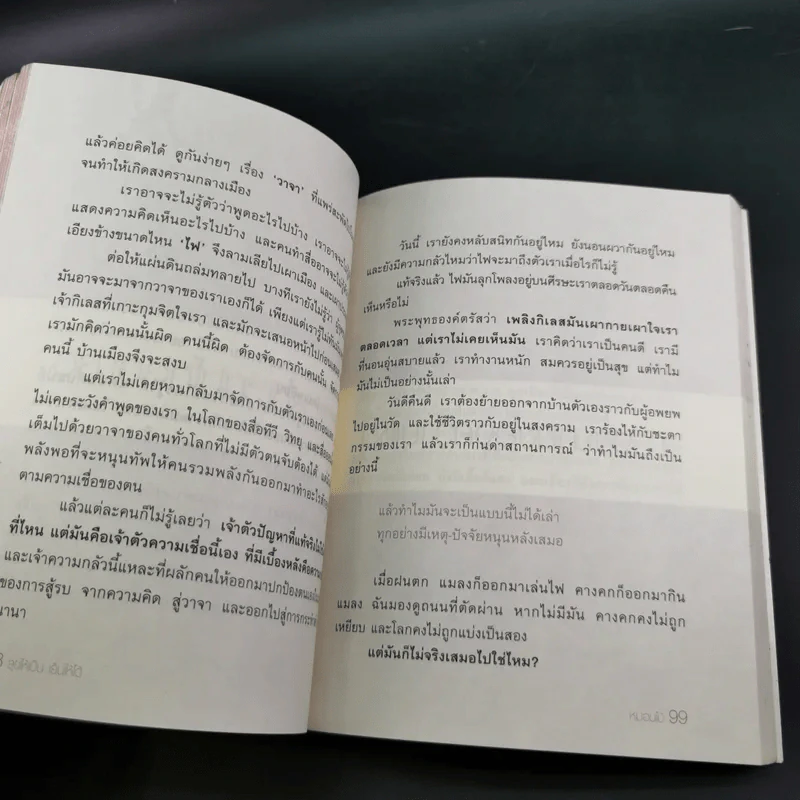 แล้วค่อยคิดได้ ดูกันง่ายๆ เรื่อง ‘วาจา’ ที่แพร่
จนทำให้เกิดสงครามกลางเมือง
เราอาจจะไม่รู้ตัวว่าพูดอะไรไปบ้าง เราอาจจะไม่รู้
แสดงความคิดเห็นอะไรไปบ้าง และคนทำสื่ออาจจะไม่รู้
เอียงข้างขนาดไหน ‘ไฟ’ จึงลามเลียไปเผาเมือง
ต่อให้แผ่นดินถล่มทลายไป บางทีเรายังไม่รู้ว่า
มันอาจจะมาจากวาจาของเราเองก็ได้ เพียงแต่เรารู้ไม่ทัน
เจ้ากิเลสที่เกาะกุมจิตใจเรา และมักจะเสนอหน้าไปก่อน
เรามักคิดว่าคนนั้นผิด คนนี้ผิด ต้องจัดการกับคนนั้น
คนนี้ บ้านเมืองจึงจะสงบ
แต่เราไม่เคยหวนกลับมาจัดการกับตัวเราเองก่อน
ไม่เคยระวังคำพูดของเรา ในโลกของสื่อทีวี วิทยุ และสื่อ
เต็มไปด้วยวาจาของคนทั่วโลกที่ไม่มีตัวตนจับต้องได้
พลังพอที่จะหนุนทัพให้คนรวมพลังกันออกมาทำอะไร
ตามความเชื่อของตน
แล้วแต่ละคนก็ไม่รู้เลยว่า เจ้าตัวปัญหาที่แท้จริง
ที่ไหน แต่มันคือเจ้าตัวความเชื่อนี้เอง ที่มีเบื้องหลังคือ
และเจ้าความกลัวนี้แหละที่ผลักคนให้ออกมาปกป้องตนเอง
ของการสู้รบ จากความคิด สู่วาจา และออกไปสู่การกระทำ
นานา
วันนี้ เรายังคงหลับสนิทกันอยู่ไหม ยังนอนผวากันอยู่ไหม
และยังมีความกลัวไหมว่าไฟจะมาถึงตัวเราเมื่อไรก็ไม่รู้
แท้จริงแล้ว ไฟมันลุกโพลงอยู่บนศีรษะเราตลอดวันตลอดคืน
เห็นหรือไม่
พระพุทธองค์ตรัสว่า เพลิงกิเลสมันเผากายเผาใจเรา
ตลอดเวลา แต่เราไม่เคยเห็นมัน เราคิดว่าเราเป็นคนดี เรามี
ที่นอนอุ่นสบายแล้ว เราทำงานหนัก สมควรอยู่เป็นสุข แต่ทำไม
มันไม่เป็นอย่างนั้นเล่า
วันดีคืนดี เราต้องย้ายออกจากบ้านตัวเองราวกับผู้อพยพ
ไปอยู่ในวัด และใช้ชีวิตราวกับอยู่ในสงคราม เราร้องไห้กับชะตา
กรรมของเรา แล้วเราก็ก่นด่าสถานการณ์ ว่าทำไมมันถึงเป็น
อย่างนี้
แล้วทำไมมันจะเป็นแบบนี้ไม่ได้เล่า
ทุกอย่างมีเหตุ-ปัจจัยหนุนหลังเสมอ
เมื่อฝนตก แมลงก็ออกมาเล่นไฟ คางคกก็ออกมากิน
แมลง ฉันมองดูถนนที่ตัดผ่าน หากไม่มีมัน คางคกคงไม่ถูก
เหยียบ และโลกคงไม่ถูกแบ่งเป็นสอง
แต่มันก็ไม่จริงเสมอไปใช่ไหม?
99